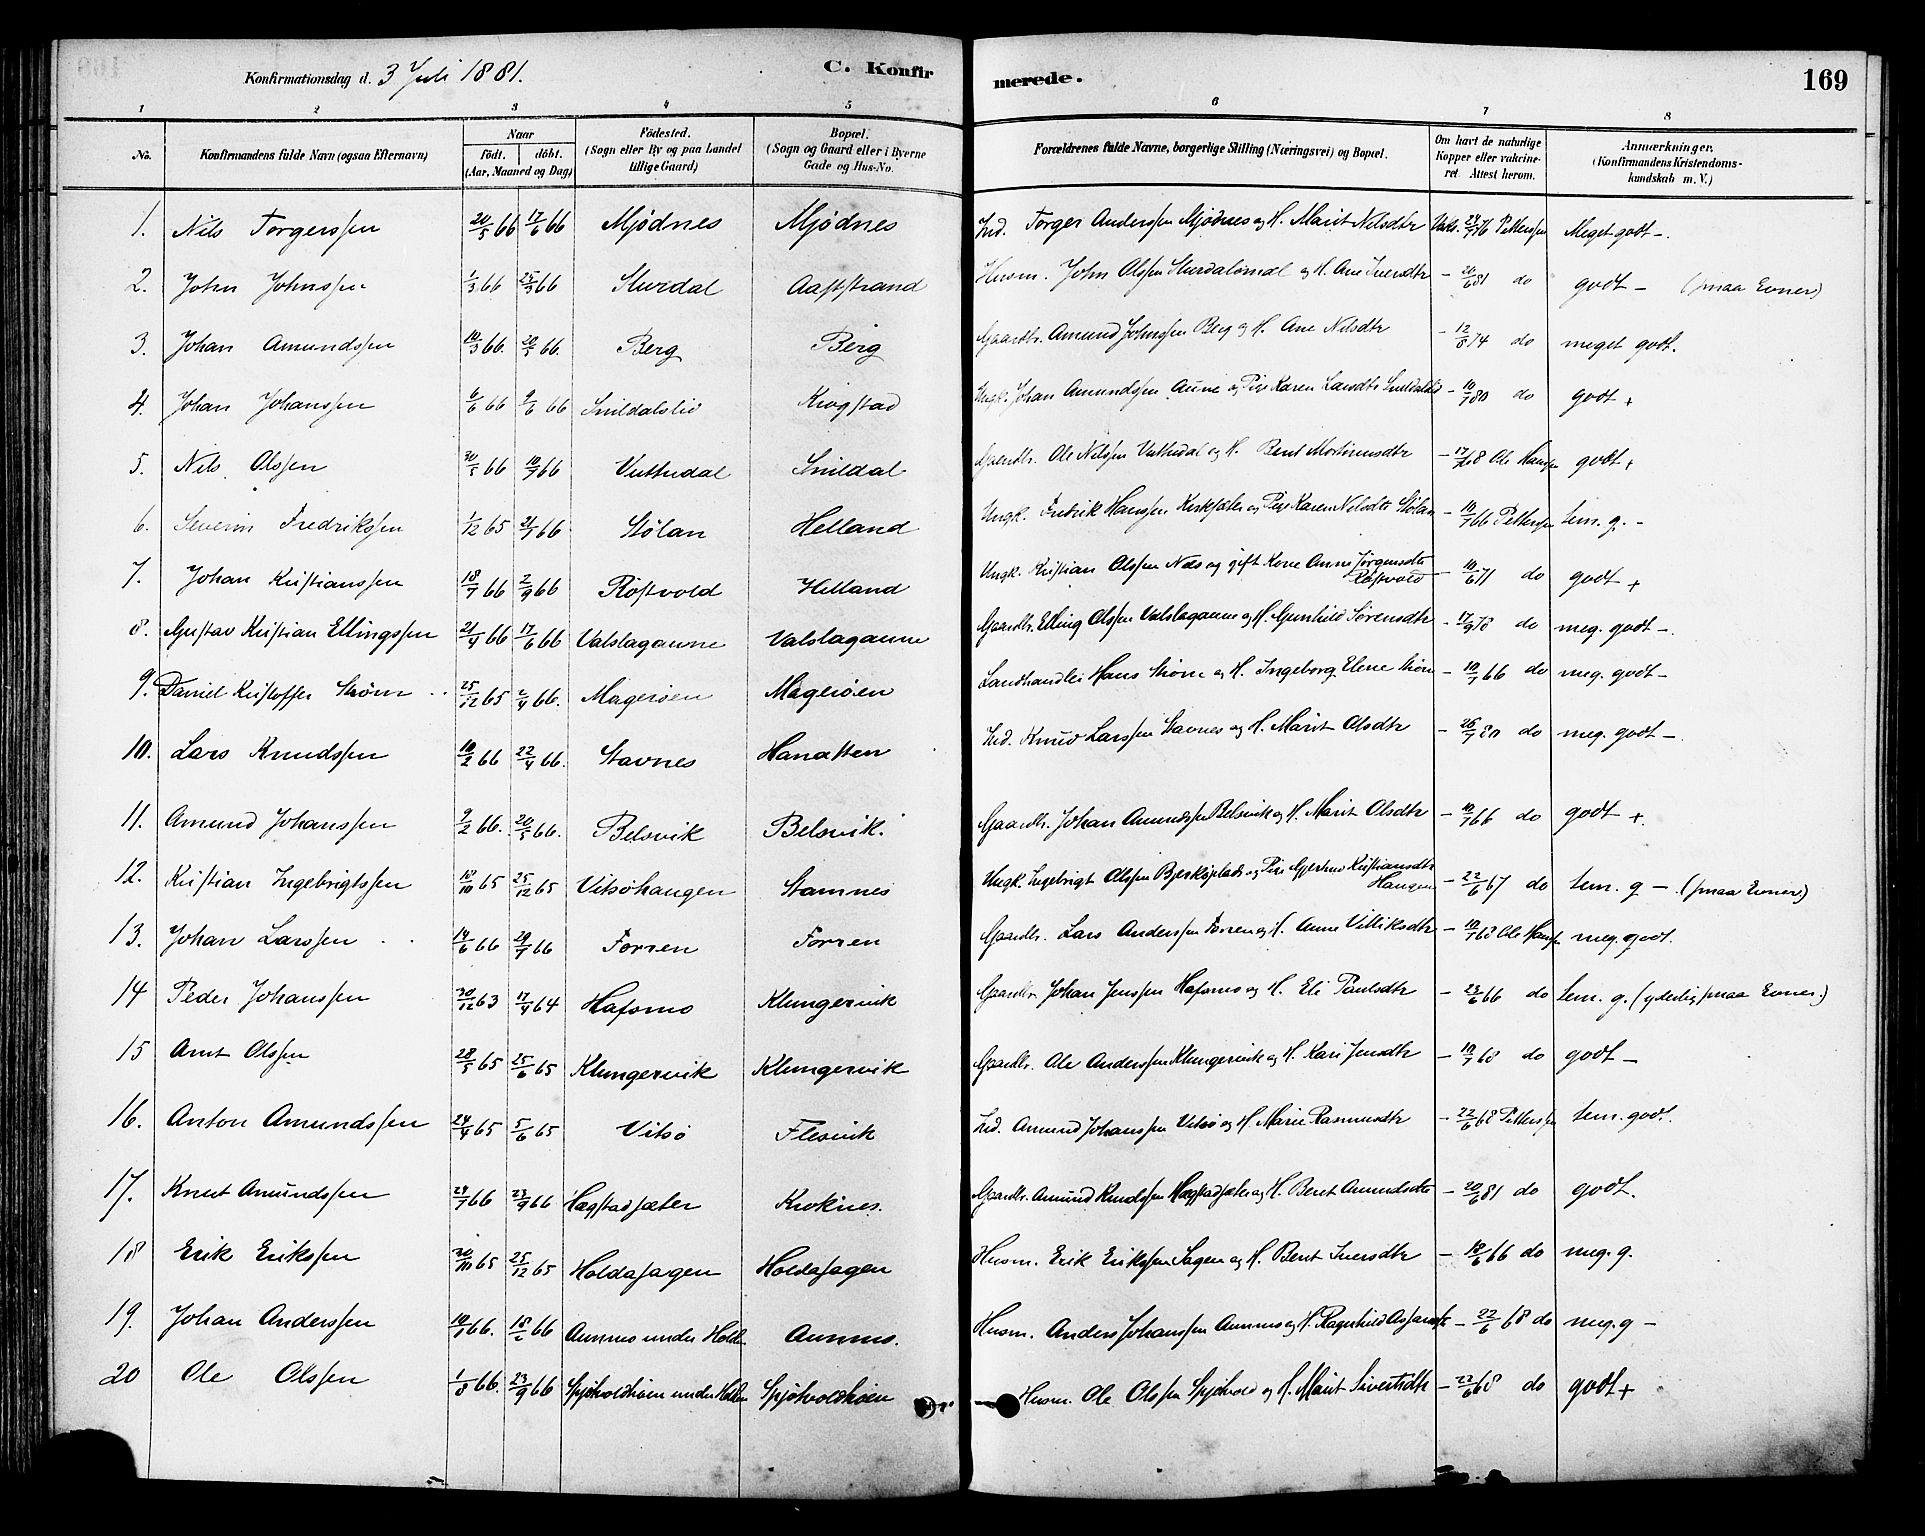 Konfirmationsdag d. 3 Juli 1881.
C. Konfirmerede.
169
1 2 3 4 5 6 7 8
No.
Konfirmandens fulde Navn (ogsaa Efternavn)
Naar
Födt. döbt.
(Aar, Maaned og Dag)
Födested.
(Sogn eller By og paa Landet tillige Gaard)
Bopæl.
(Sogn og Gaard eller i Byerne Gade og Hus-No.
Forældrenes fulde Navne, borgerlige Stilling (Næringsvei) og Bopæl.
Om havt de naturlige Kopper eller vakcineret. Attest herom.
Anmærkninger.
(Konfirmandens Kristendomskundskab m. V.)
1. Nils Torgerssen 20/5 66 17/6 66 Mjödnes Mjödnes Ind. Torger Anderssen Mjödnes og H. Marit Nilsdtr Vaks. 24/7 76 Petterssen Meget godt -.
2. John Johnssen 1/3 66 25/3 66 Slurdal Aaststrand Husm. John Olssen og H. Ane Iversdtr - 20/6 81 do godt - (smaa Evner)
3. Johan Amundssen 18/3 66. 20/5 66. Berg Berg Gaardbr. Amund Johnssen Berg og H. Ane Nilsdtr - 12/8 74 do meget godt.
4. Johan Johanssen 6/6 66 9/6 66 Snildalslid Krogstad Ungk. Johan Amundssen Aune og Pige Karen Larsdtr Snildalslid - 10/7 80 do godt +
5. Nils Olssen 66 10/7 66 Vuttudal Snildal Gaardbr. Ole Nilssen Vuttudal og H. Beret Mortinusdtr - 17/7 68 Ole Hanssen godt +
6. Severin Fredrikssen 1/12 65 21/1 66. Stølan Helland Ungk. Fredrik Hanssen og Pige Karen Nilsdtr Stølan - 10/7 66 Petterssen tem. g. -
7. Johan Kristianssen 18/7 66 2/9 66 Røstvold Helland Ungk. Kristian Olssen Næs og gift Kone Anne Jørgensdtr Røstvold - 10/6 71 do godt +
8. Gustav Kristian Ellingssen 21/4 66 17/6 66 Valslagaunne Valslagaunne Gaardbr. Elling Olssen Valslagaunne og H. Gunhild Sørensdtr - 17/9 78 do meg. godt -.
9. Daniel Kristoffer Strøm 25/12 65 2/4 66. Magerøen Magerøen Landhandler Hans Strøm og H. Ingeborg Elene Strøm - 10/7 66 do meg. godt -
10. Lars Knudssen 10/2 66 22/4 66. Stavnes Hanatten Ind. Knud Larssen Stavnes og H. Marit Olsdtr - 26/7 80 do meg. godt -.
11. Amund Johanssen 9/2 66. 20/5 66. Belsvik Belsvik. Gaardbr. Johan Amundssen Belsvik og H. Marit Olsdtr - 10/7 66 do godt +.
12. Kristian Ingebrigtssen 18/10 65 25/12 65 Vitsöhaugen Stamnes Ungk. Ingebrigt Olssen og Pige Gjertrud Kristiansdtr Haugen - 22/6 67 do tem. g -. (smaa Evner)
13. Johan Larssen 14/6 66 29/7 66 Forren Forren Gaardbr. Lars Anderssen Forren og H. Anne Villiksdtr - 10/7 68 Ole Hanssen meg. godt.
14 Peder Johanssen 20/12 63 17/4 64 Hafsmo Klungervik Gaardbr. Johan Jenssen Hafsmo og H. Eli Paulsdtr - 23/6 66 do tem. g. (yderlig smaa Evner.)
15 Arnt Olssen 28/5 65 25/6 65 Klungervik Klungervik Gaardbr. Ole Anderssen Klungervik og H. Kari Jensdtr - 10/7 68 do godt -
16. Anton Amundssen 24/4 65 5/6 65 Vitsö Flesvik Ind. Amund Johanssen Vitsö og H. Marie Rasmusdtr - 22/6 68 Petterssen tem. godt.
17. Knut Amundssen 29/7 66 23/9 66 Hægstadsæter Kroknes. Gaardbr. Amund Knudssen Hægstadsæter og H. Beret Amundsdtr - 20/6 81 do godt.
18 Erik Erikssen 30/10 65 25/12 65 Holdahagen Holdahagen Husm. Erik Erikssen Hagen og H. Beret Iversdtr - 18/6 66 do meg. g.
19. Johan Anderssen 66. 66 Aunmo under Holden Aunmo. Husm. Anders Johanssen Aunmo og H. Ragnhild - 22/6 68 do meg. g -
20 Ole Olssen 1/8 66. 23/9 66 Spjötvoldhöen under Holden Spjötvoldhöen Husm. Ole Olssen Spjötvold og H. Marit Sivertsdtr - 22/6 68 do godt +